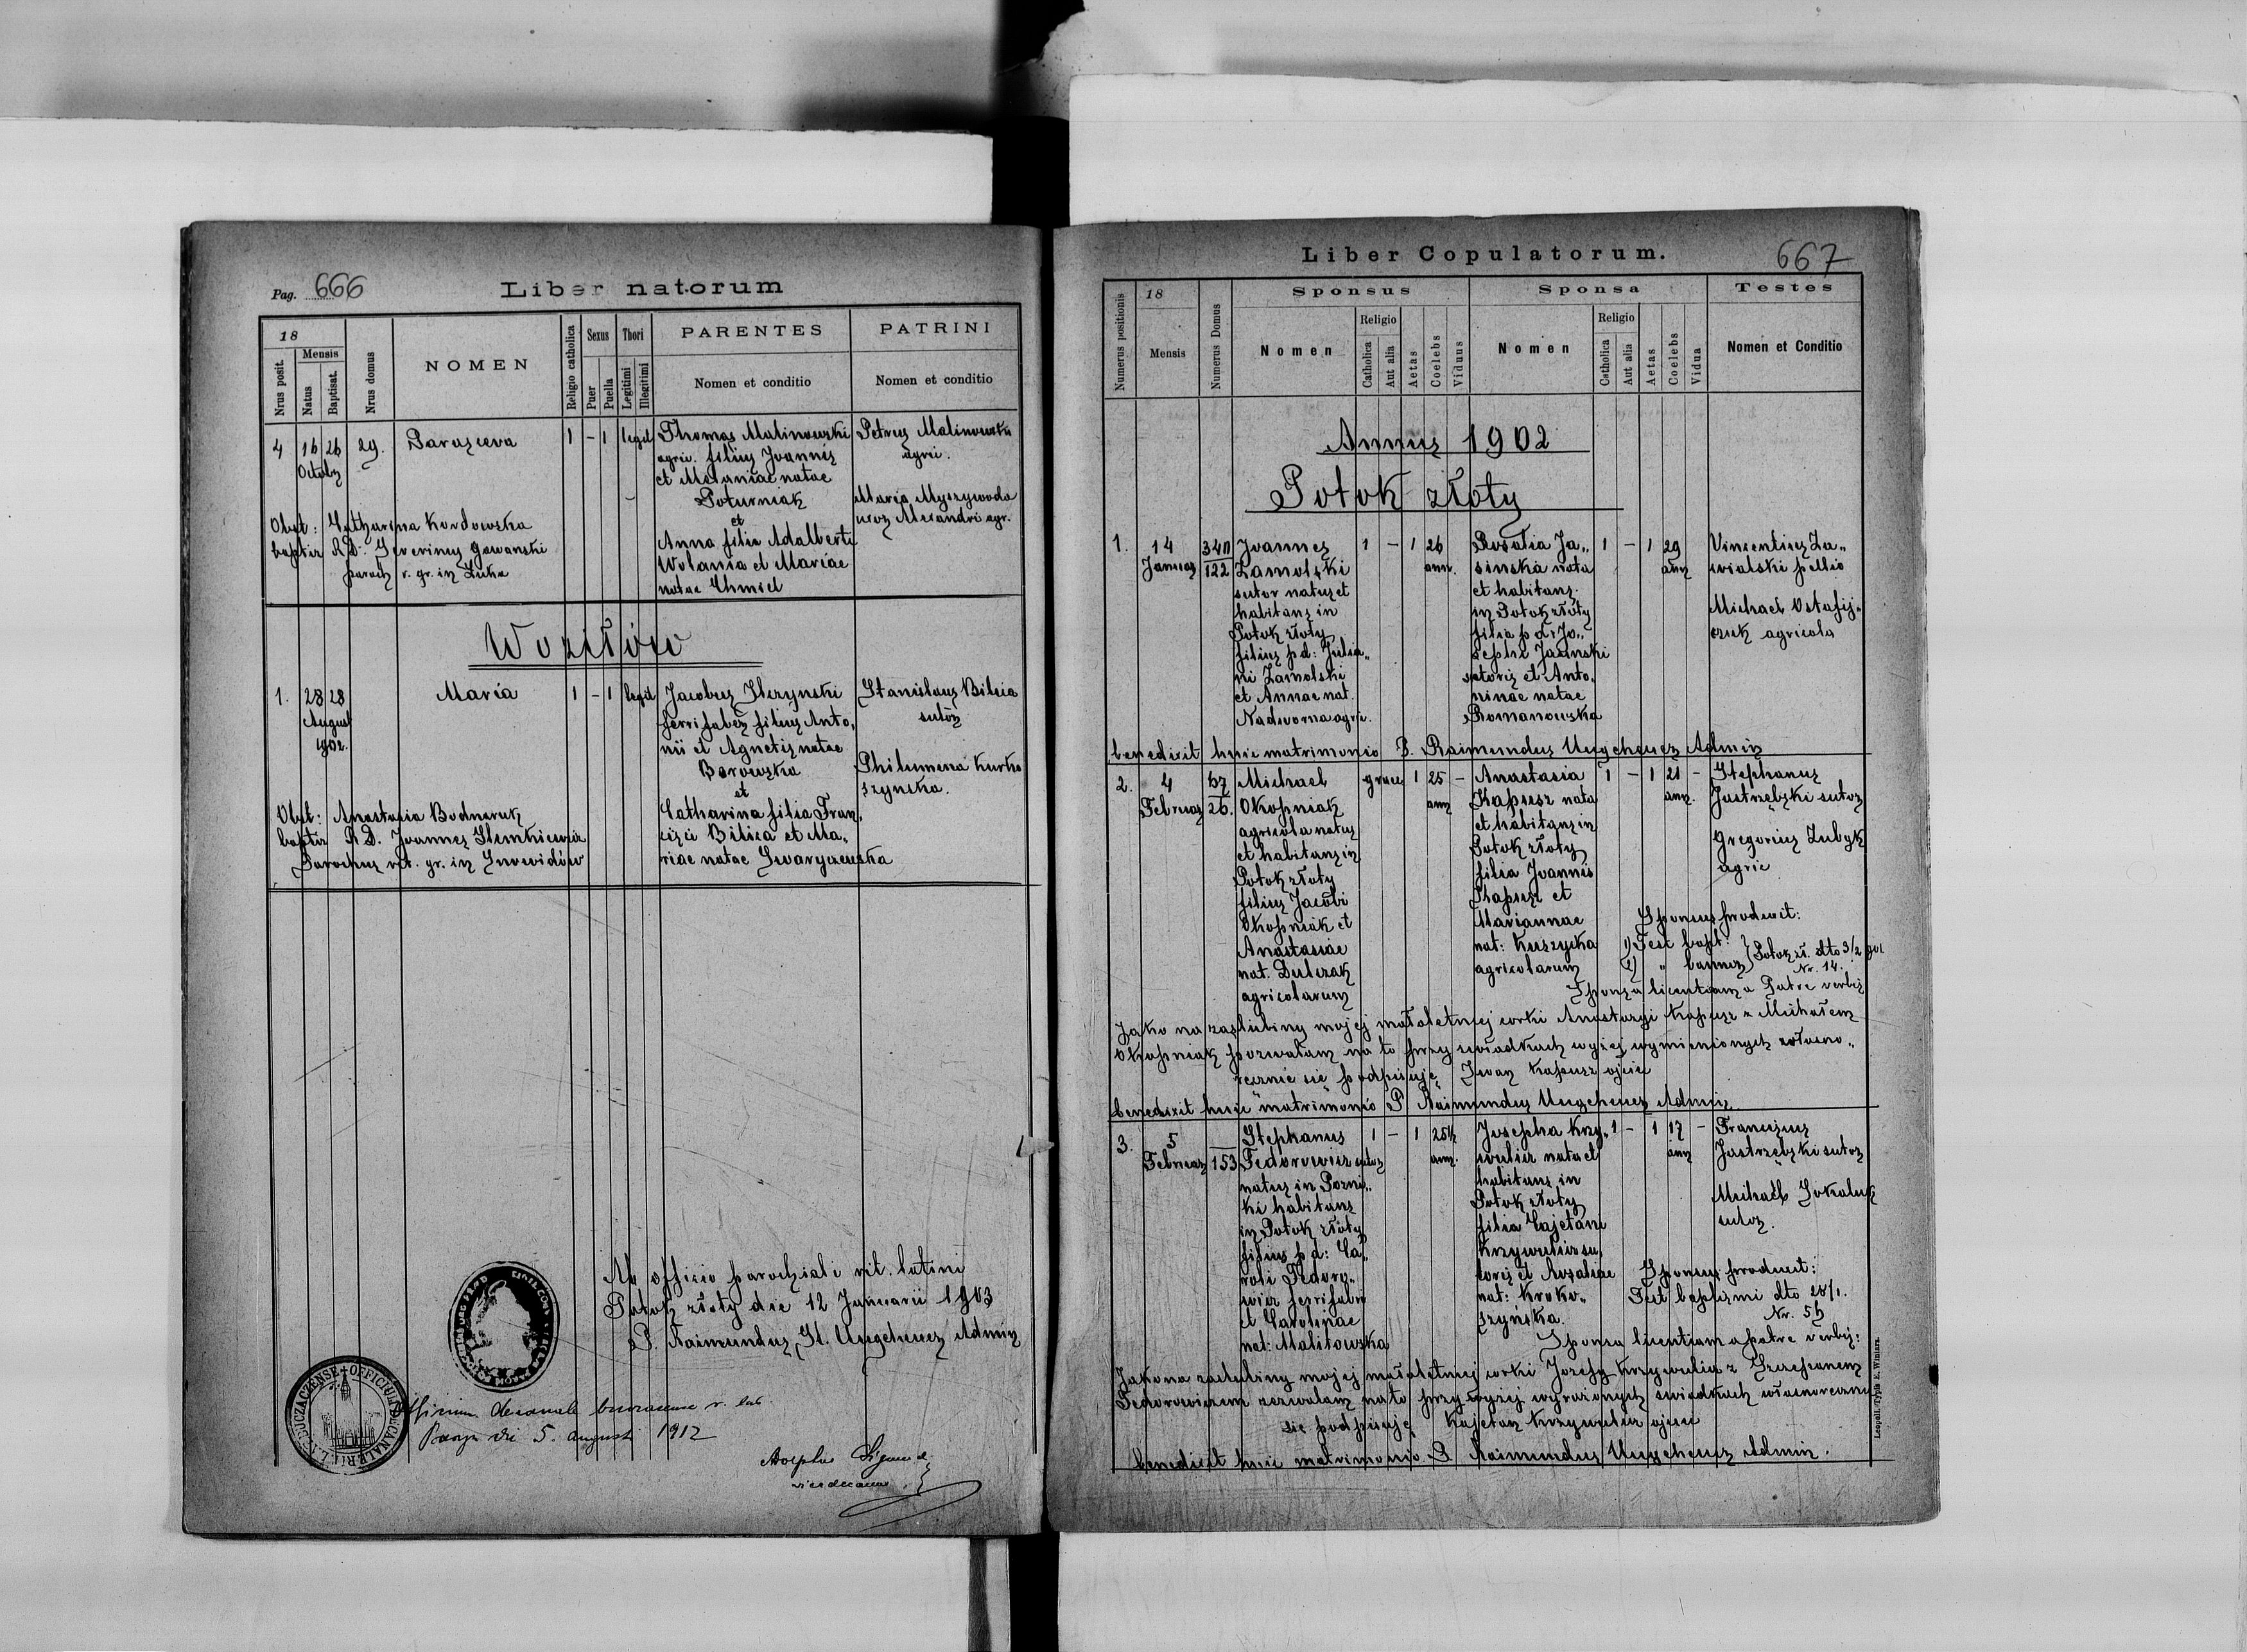 Pag. 666
Liber natorum
18
Nrus posit.
Mensis
Natus
Baptisat.
Nrus domus
NOMEN
Religio catholica
Sexus
Puer
Puella
Thori
Legitimi
Illegitimi
PARENTES
Nomen et conditio
PATRINI
Nomen et conditio
4 16 26 29. Parasceva 1 – 1 legit Thomas Malinowski Petrus Malinowski
Octobr agric. filius Joannis agric.
et Melaniae natae
Poturniak Maria
et uxor Alexandri agr.
Obst: Catharina Kordowska
baptis R.D. Severinus
paroch r. gr. in Łuka
Anna filia Adalberti
Wolania et Mariae
natae Chmiel
Woziłów
1. 28 28 Maria 1 – 1 legit Jacobus Stanislaus Bilica
August ferrifaber filius Anto, sutor
1902. nii et Agnetis natae
Borowska Philumena
et
Catharina filia Fran,
cisci Bilica et Ma,
riae natae
Obst: Anastasia Bodnaruk
baptis R.D. Joannes
Parochus rit. gr. in
Ab officio parochiali rit. latini
Potok złoty die 12 Januarii 1903
P. Raimundus St. Admin
OFFICIUM DECANALE RIT. L. BUCZACZENSE
Officium decanale buczacense r. lat.
die 5. augusti 1912
Adolphus
vicedecanus
Liber Copulatorum.
667
Numerus positionis
18
Mensis
Numerus Domus
Sponsus
Nomen
Religio
Catholica
Aut alia
Aetas
Coelebs
Viduus
Sponsa
Nomen
Religio
Catholica
Aut alia
Aetas
Coelebs
Vidua
Testes
Nomen et Conditio
Annus 1902
Potok złoty
1. 14 340 Joannes 1 – 1 26 Rosalia Ja„ 1 – 1 29 Vincentius Za„
Januar 122 Zamolski ann. sinska nata ann wialski pellio
sutor natus et et habitans
habitans in in Potok złoty Michael Ostafij„
Potok złoty filia p.d: Jo„ czuk agricola
filius p.d: Julia„ sephi Jasinski
ni Zamolski sutoris et Anto,
et Annae nat. ninae natae
Nadworna agric. Romanowska
benedixit huic matrimonio P. Raimundus Admin
2. 4 67 Michael graec 1 25 – Anastasia 1 – 1 21 – Stephanus
Februar 26. Okopniak ann Kapusz nata ann. Jastrzębski sutor
agricola natus et habitans in
et habitans in Potok złoty Gregorius Zubyk
Potok złoty filia Joannis agric
filius Jacobi Kapusz et
Okopniak et Mariannae
Anastasiae nat: Kuszycka
nat. Dulczak agricolarum
agricolarum
Sponsus produxit:
1) Test bapt.
2) „ bannor Potok zł. dto 3/2 901
Nr. 14.
Sponsa licentiam a Patre verbis
Jako na zaślubiny mojej małoletniej corki Anastazyi Kapusz z Michałem
Okopniak pozwalam na to przy świadkach wyżej wymienionych własno„
ręcznie się podpisuję Iwan Kapusz ojciec
benedixit huic matrimonio P Raimundus Admin.
3. 5 Stephanus 1 – 1 25½ Josepha Krzy„ 1 – 1 17 – Franciscus
Februar 153 Fedorowicz sutor ann. wulicz nata et ann Jastrzębski sutor
natus in Porni„ habitans in
ki habitans Potok złoty Michaël Sokaluk
in Potok złoty filia Cajetani sutor.
filius p.d: Ca„ Krzywulicz su,
roli Fedoro„ toris et Rosaliae
wicz ferrifabri nat: Kroko„
et Carolinae szyńska.
nat: Malitowska
Sponsus produxit:
Test baptismi dto 28/1.
Nr. 56
Sponsa licentiam a patre verbis:
Jako na zaslubiny mojej małoletniej corki Jozefy Krzywulicz z Szczepanem
Fedorowiczem zezwalam na to przy wyżej wyrażonych swiadkach własnoręcznie
się podpisuję Kajetan Krzywulicz ojciec
benedixit huic matrimonio P Raimundus Admin.
Leopoli. Typis E. Winiarz.